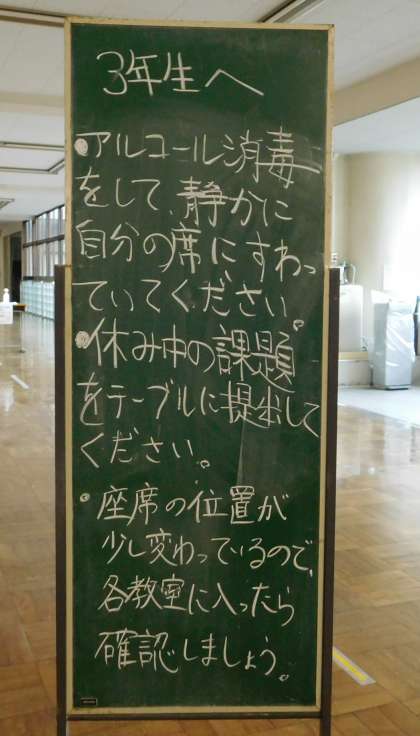 3年生へ
●アルコール消毒
をして、静かに
自分の席にすわっ
ていてください。
●休み中の課題
をテーブルに提出して
ください。
●座席の位置が
少し変わっているので、
各教室に入ったら
確認しましょう。